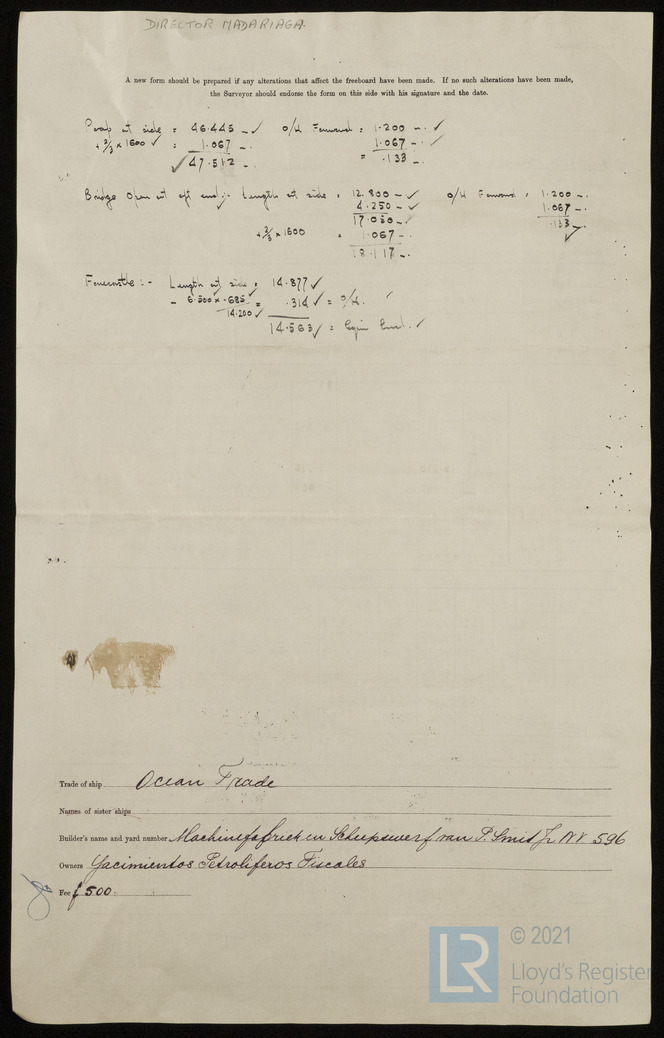 DIRECTOR MADARIAGA.
A new form should be prepared if any alterations that affect the freeboard have been made. If no such alterations have been made,
the Surveyor should endorse the form on this side with his signature and the date.
Poop at side = 46.445 - ✓ O/H Forward = 1.200 - ✓
+ 2/3 × 1600 ✓ = 1.067 - 1.067 - ✓
✓ 47.512 - = .133 -
Bridge open at aft end :- Length at side = 12.800 - ✓ O/H Forward = 1.200 -
4.250 - ✓ 1.067 -
17.050 - ✓ .133 -
+ 2/3 × 1600 = 1.067 - ✓
18.117 -
Forecastle :- Length at side = 14.877 ✓
- 6.500 × .685 = .314 ✓ = O/H. ✓
14.200 ✓
14.563 ✓ =
Trade of ship Ocean Trade
Names of sister ships
Builder's name and yard number Machinefabriek en Scheepswerf van P. Smit Jr. NV 596
Owners Yacimientos Petroliferos Fiscales
Fee £ 500 :
© 2021
LR
Lloyd's Register
Foundation